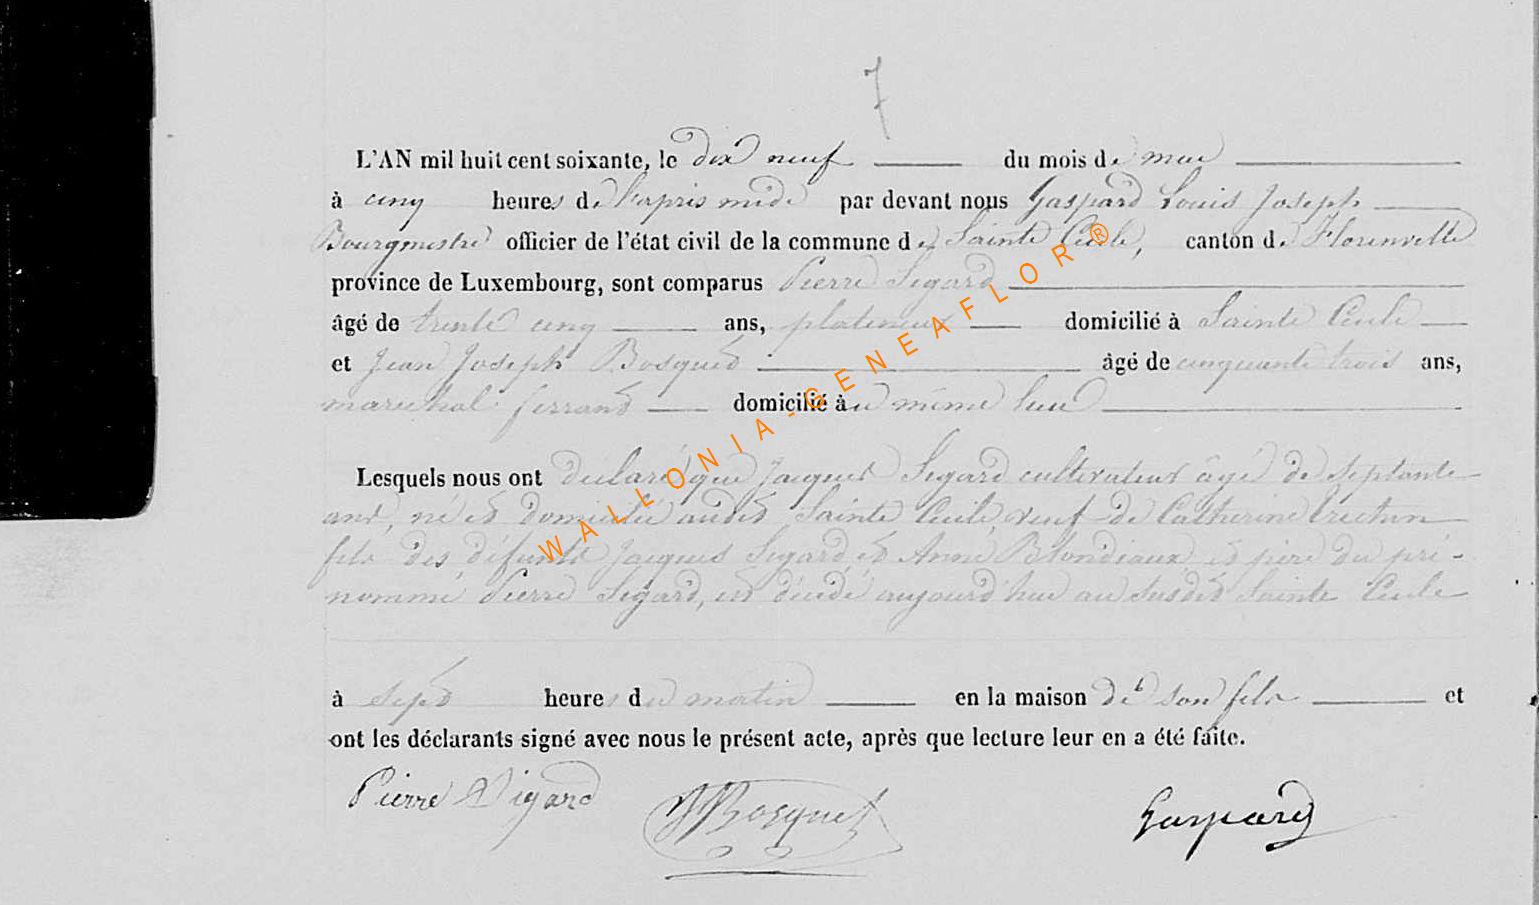 7
L'AN mil huit cent soixante, le dix neuf du mois de mai
à cinq heures de l'après midi par devant nous Gaspard Louis Joseph
Bourgmestre officier de l'état civil de la commune de Sainte Cécile, canton de Florenville
province de Luxembourg, sont comparus Pierre Sigard
âgé de trente cinq ans, domicilié à Sainte Cécile
et Jean Joseph Bosquet âgé de cinquante trois ans,
marechal ferrand domicilié au même lieu
Lesquels nous ont déclaré que Jacques Sigard cultivateur âgé de septante
ans, né et domicilié audit Sainte Cécile veuf de Catherine
fils des défunts Jacques Sigard et Anne Blondiaux et père du pré-
nommé Pierre Sigard, est décédé aujourd'hui au susdit Sainte Cécile
à sept heures du matin en la maison de son fils et
ont les déclarants signé avec nous le présent acte, après que lecture leur en a été faite.
Pierre Sigard JJBosquet Gaspard
WALLONIA-GENEAFLOR®